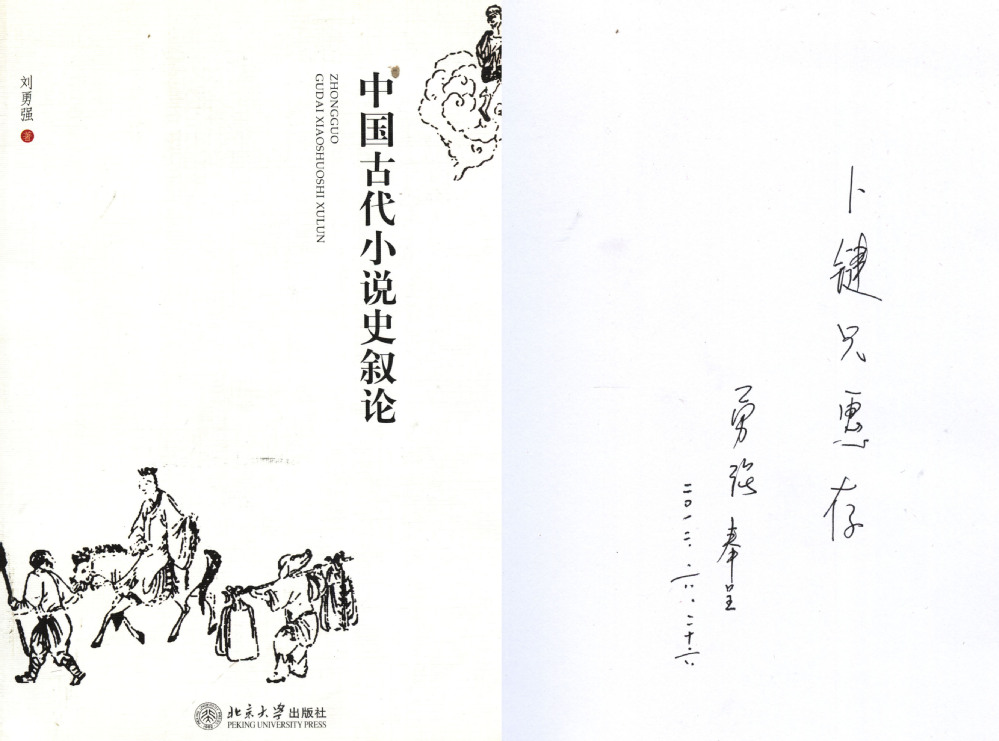 刘勇强 著
中国古代小说史叙论
ZHONGGUO
GUDAI XIAOSHUOSHI XULUN
北京大学出版社
PEKING UNIVERSITY PRESS
卜键兄惠存
勇强 奉呈